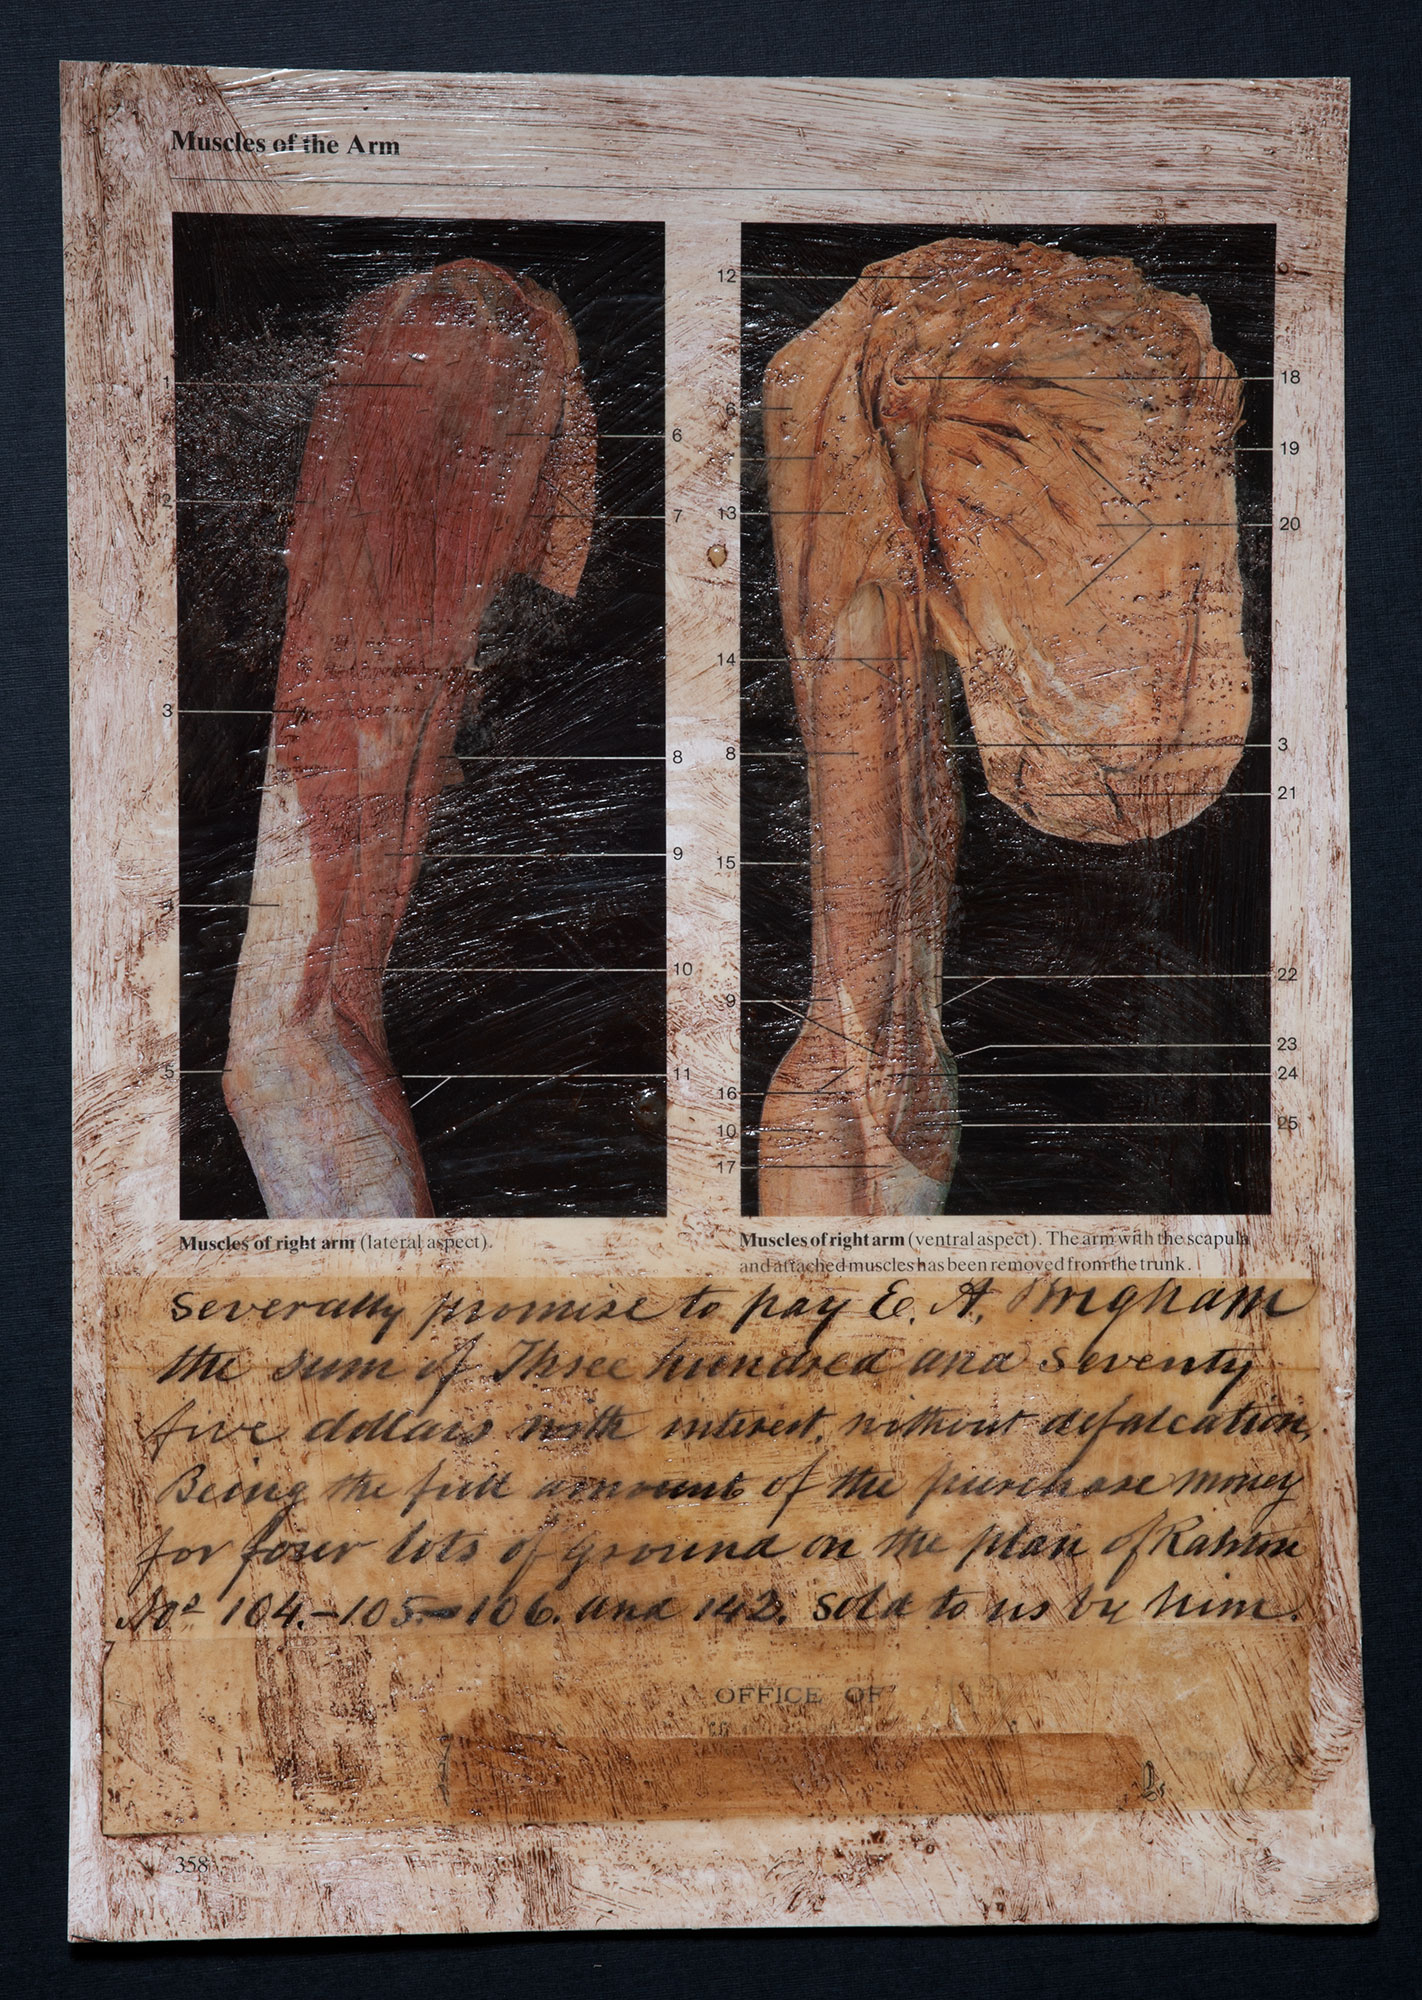 Muscles of the Arm
1
2
3
5
6
7
8
9
10
11
12
6
13
14
8
15
9
16
10
17
18
19
20
3
21
22
23
24
25
Muscles of right arm (lateral aspect).
Muscles of right arm (ventral aspect). The arm with the scapula
and attached muscles has been removed from the trunk.
severally promise to pay E. A. Bingham
the sum of Three hundred and seventy
five dollars with interest, without defalcation,
Being the full amount of the purchase money
for four lots of ground on the plan of
Nos 104.-105-106. and 142. sold to us by him.
OFFICE OF
358